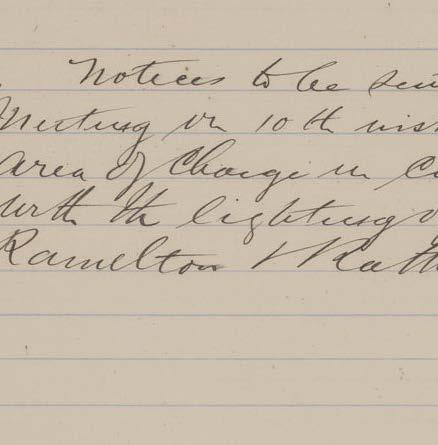 Notices to be
Meeting on 10th inst
area of Charge in
with the lighting
Ramelton & Rath